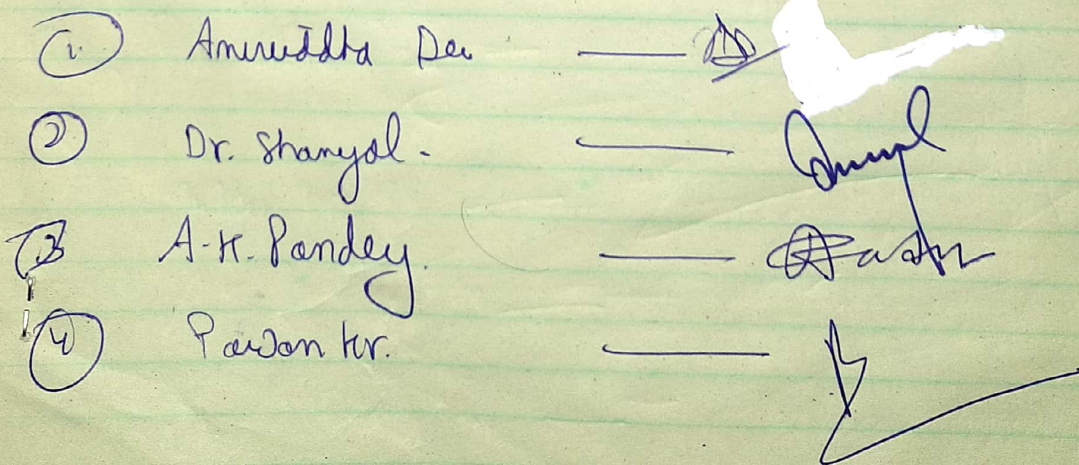 1. Aniruddha Dev —
2 Dr. Shanyal. —
3 A.K. Pandey. —
4 Pawan Kr. —